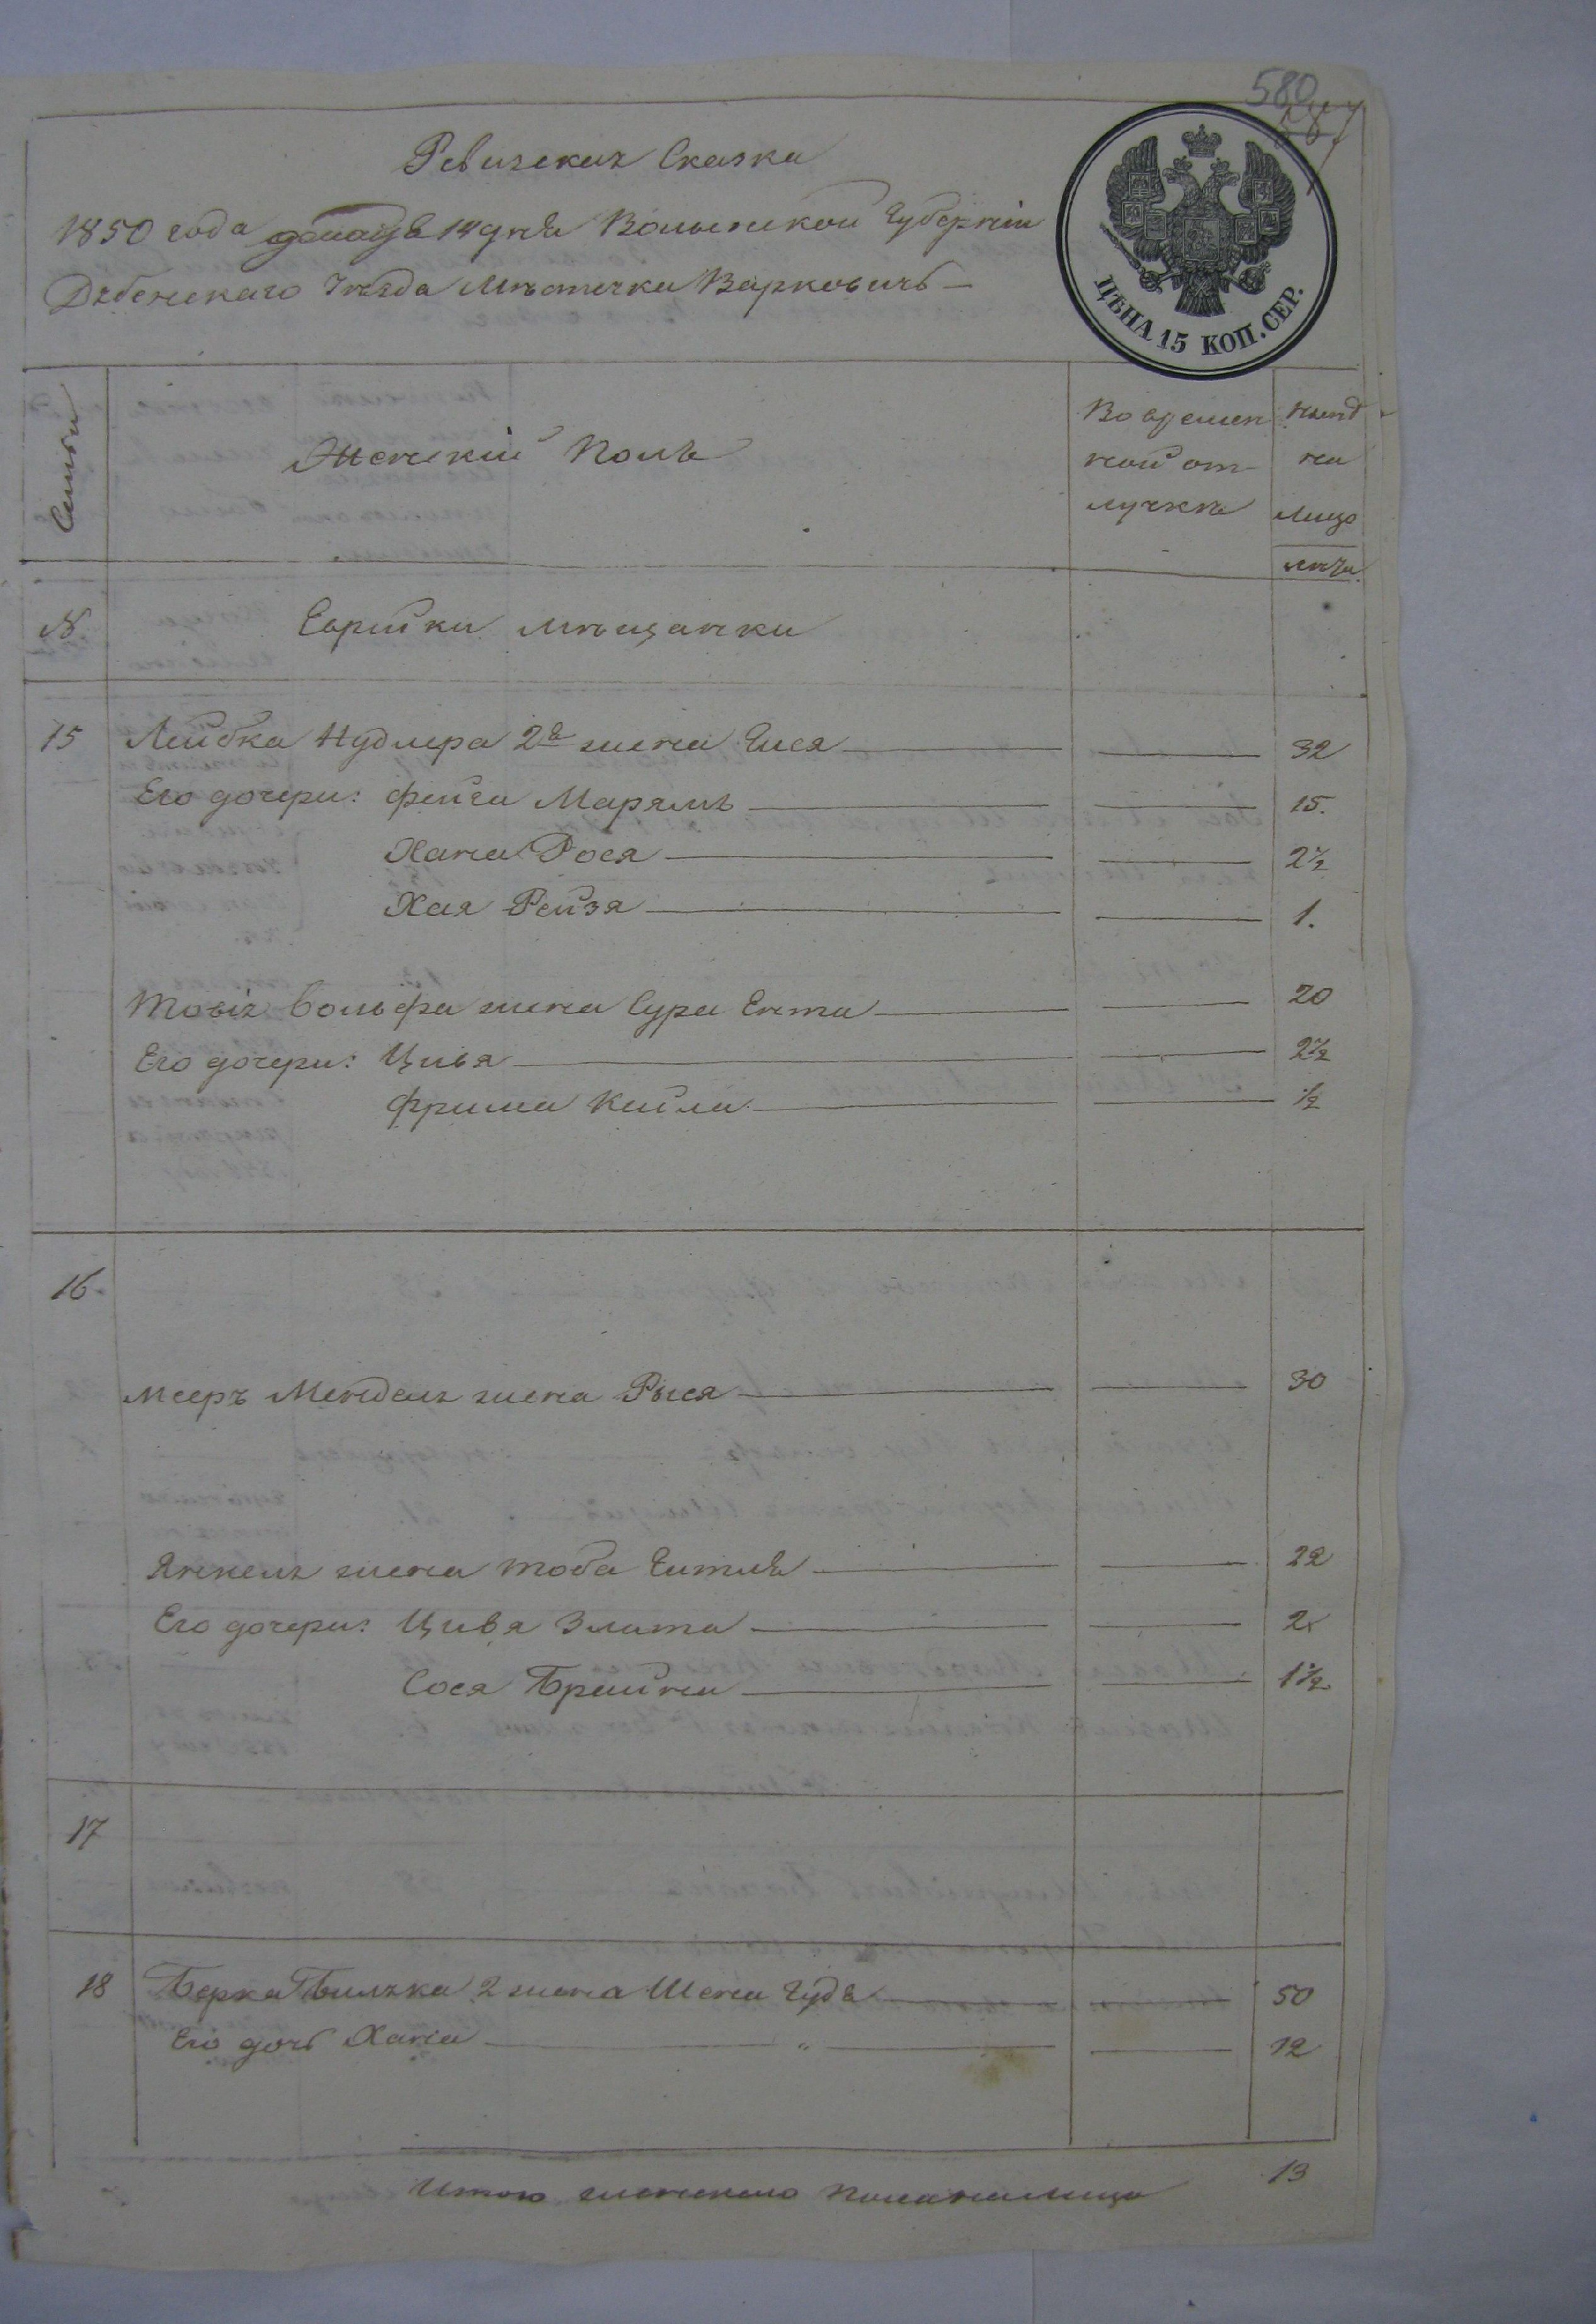 580
587
Ревизскаѧ Сказка
1850 года 14 дня Волынской Губерніи
Дубенскаго Уѣзда Мѣстечка Варковичъ —
ЦѢНА 15 КОП. СЕР.
Семьи
Женскій Полъ
Во времен
ной от-
лучкѣ
нынѣ
на
лицо
лѣта
№
Еврейки мѣщанки
15 Лейбка Нудлера 2я жена Гися 32
Его дочери: Фейга Марямъ 15.
Хана Рося 2½
Хая Рейзя 1.
Товія Вольфа жена Сура Ента 20
Его дочери: Цивя 2½
Фрима Кейла ½
16.
Мееръ Мендель жена Рыся 30
Янкель жена Тоба Ентля 22
Его дочери: Цивя Злата 2
Сося Брайна 1½
17
18 Берка 2 жена Шена Гудя 50
Его дочь Хана " 12
Итого женскаго пола налицо 13